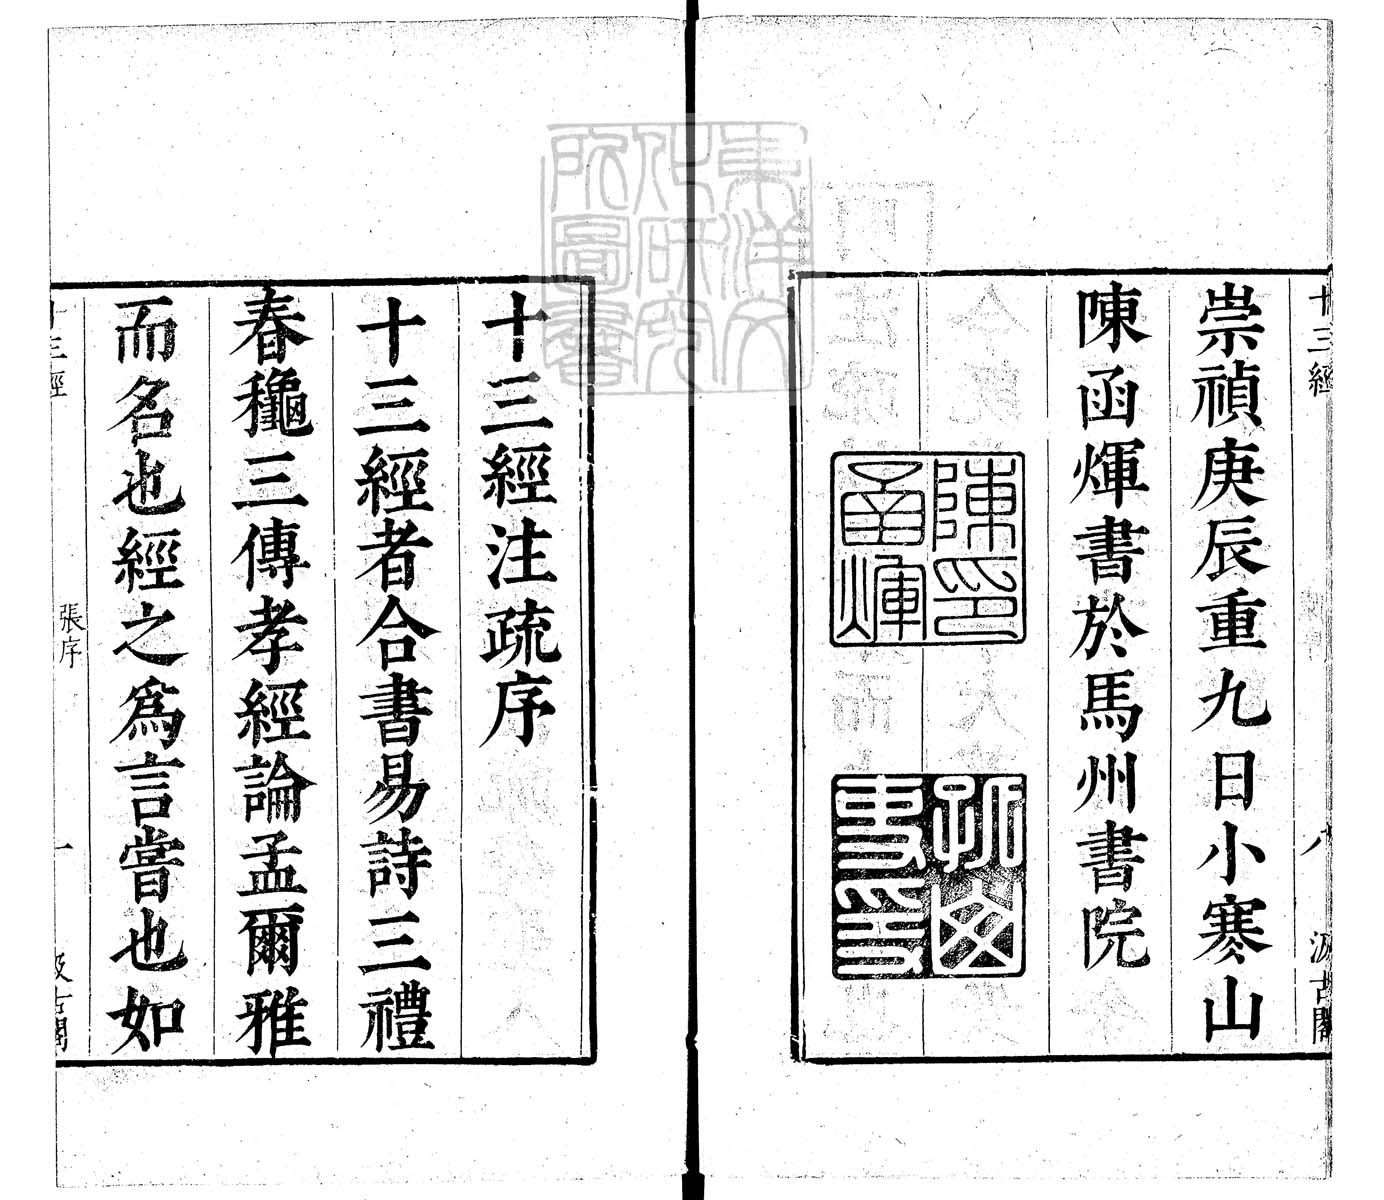 十三經
八
汲古閣
崇禎庚辰重九日小寒山
陳函煇書於馬州書院
陳印
函煇
東洋文
化研究
所圖書
十三經注疏序
十三經者合書易詩三禮
春龝三傳孝經論孟爾雅
而名也經之爲言嘗也如
十三經
張序
一
汲古閣